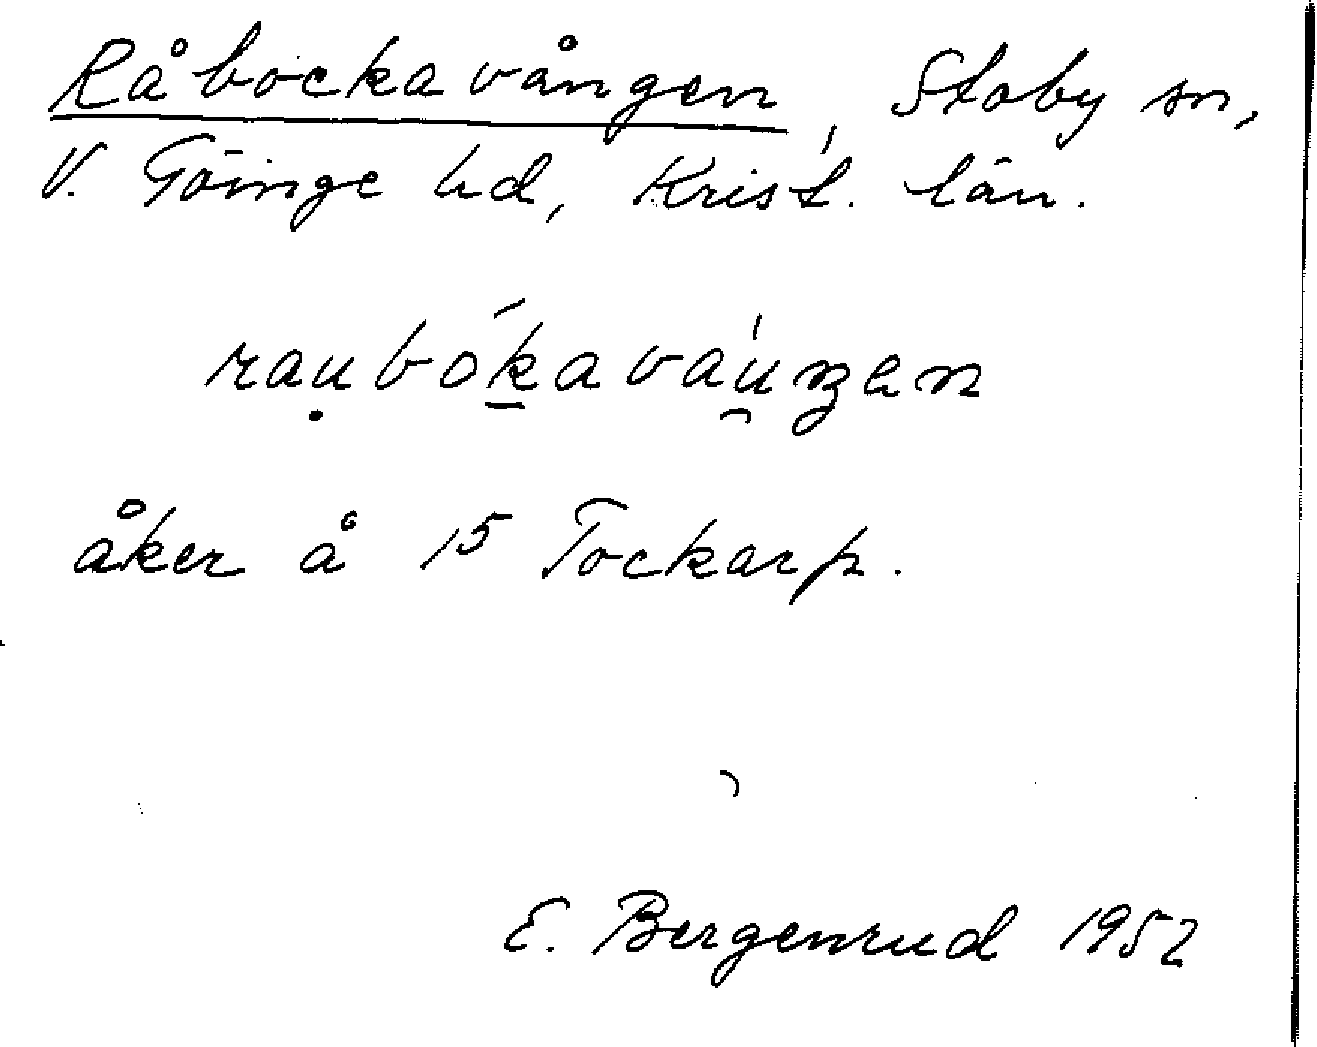 Råbockavången, Stoby sn,
V. Göinge hd, Krist. län.
rau̥bóḵavaú̯ŋen
åker å 15 Tockarp.
E. Bergenrud 1952